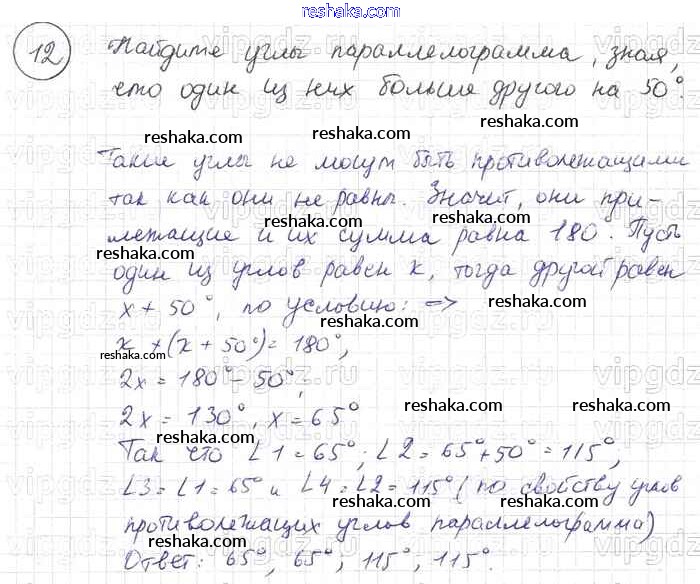 reshaka.com
12 Найдите углы параллелограмма, зная,
что один из них больше другого на 50°.
reshaka.com reshaka.com
Такие углы не могут быть противолежащими
так как они не равны. Значит, они при-
reshaka.com reshaka.com
лежащие и их сумма равна 180°. Пусть
reshaka.com
один из углов равен x, тогда другой равен
x + 50°, по условию: =>
reshaka.com reshaka.com
x + (x + 50°) = 180°,
reshaka.com
2x = 180° - 50°;
2x = 130°, x = 65°
reshaka.com reshaka.com
Так что ∠1 = 65°; ∠2 = 65° + 50° = 115°,
reshaka.com
∠3 = ∠1 = 65° и ∠4 = ∠2 = 115° (по свойству углов
reshaka.com reshaka.com
противолежащих углов параллелограмма)
Ответ: 65°, 65°, 115°, 115°.
reshaka.com